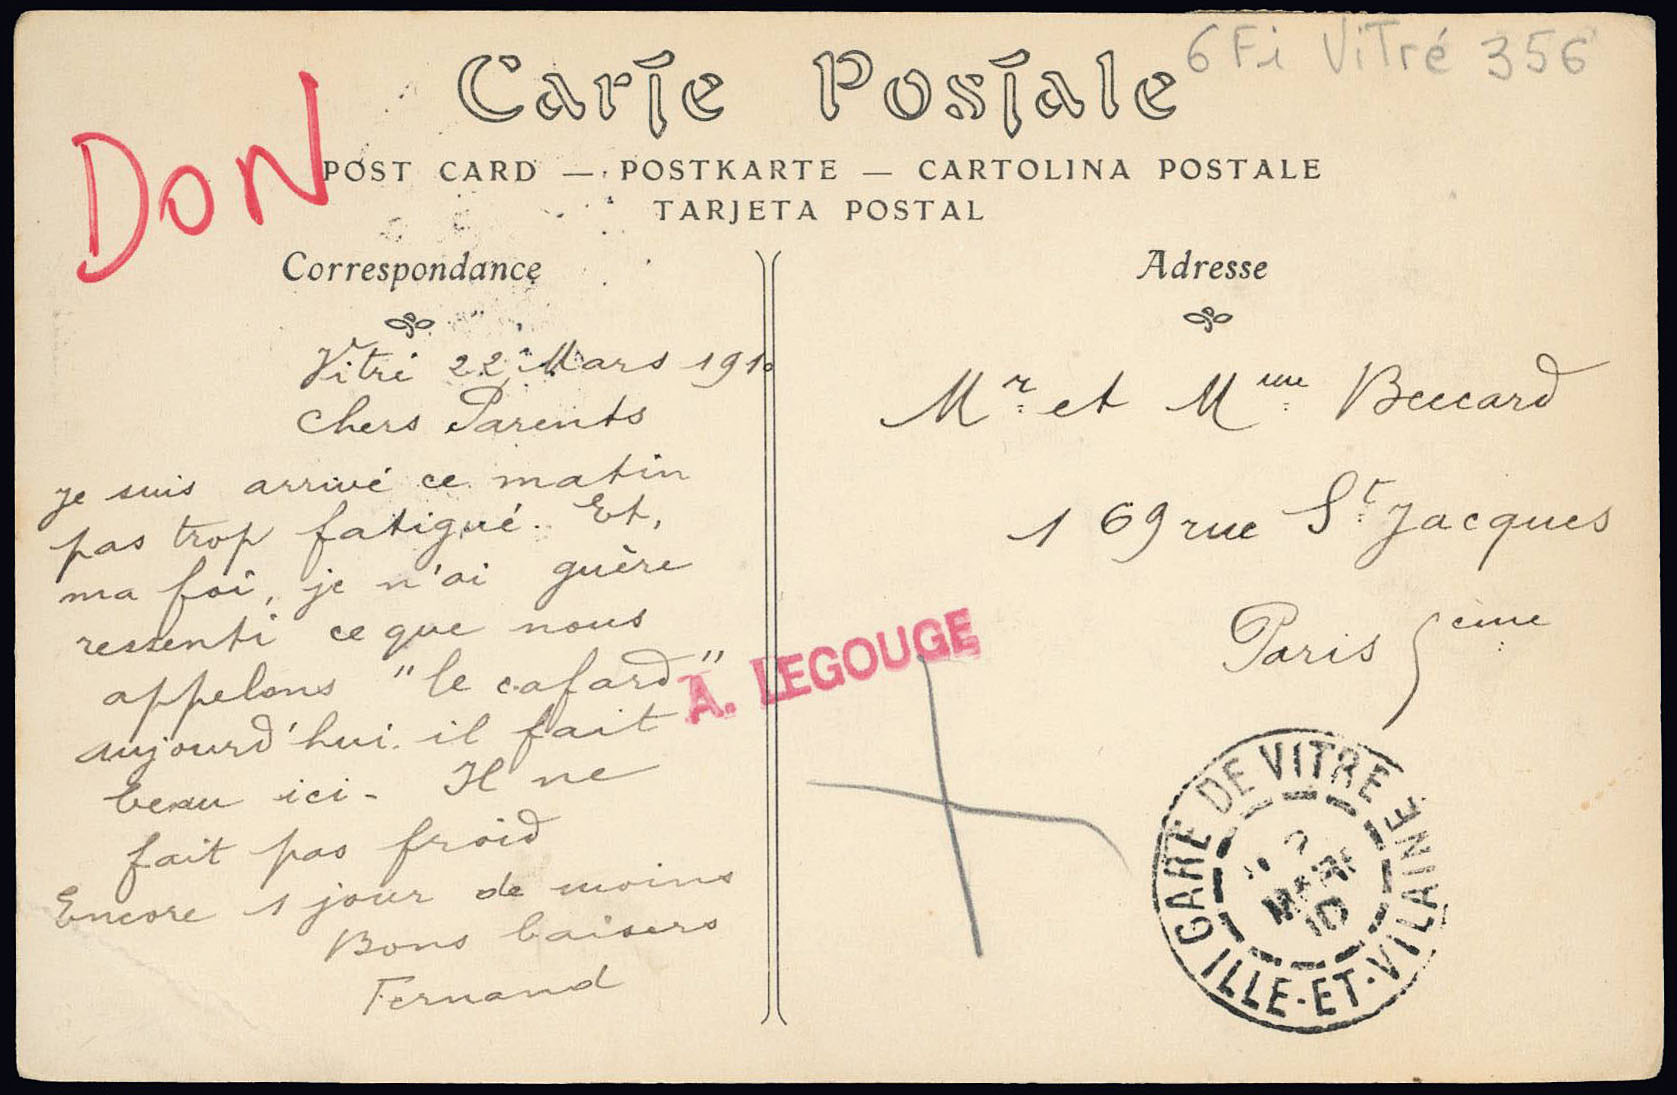 6 Fi Vitré 356
DON
Carte Postale
POST CARD — POSTKARTE — CARTOLINA POSTALE
TARJETA POSTAL
Correspondance
Vitré 22 Mars 1910
Chers Parents
je suis arrivé ce matin
pas trop fatigué. Et,
ma foi, je n'ai guère
ressenti ce que nous
appelons "le cafard"
aujourd'hui il fait
beau ici - Il ne
fait pas froid
Encore 1 jour de moins
Bons baisers
Fernand
A. LEGOUGE
Adresse
Mr et Mme
169 rue St Jacques
Paris 5ème
GARE DE VITRÉ
ILLE-ET-VILAINE
MARS
10